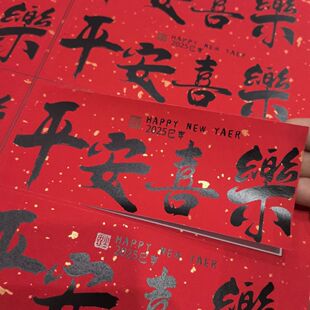 平安喜樂
HAPPY NEW YAER
2025巳年
平安喜樂
HAPPY NEW YAER
2025巳年
平安喜樂
HAPPY NEW YAER
2025巳年